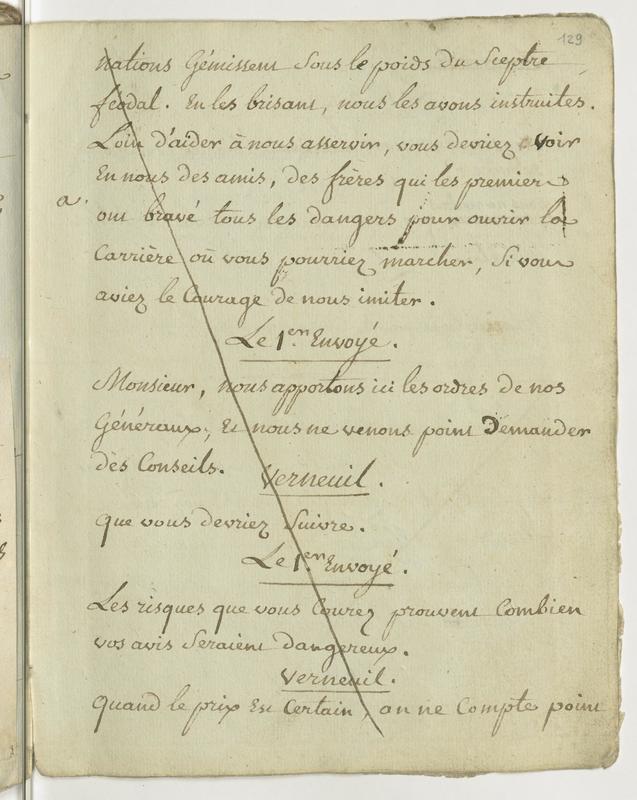 129
nations Gémissent Sous le poids du Sceptre
féodal. En les brisant, nous les avons instruites.
Loin d'aider à nous asservir, vous devriez voir
En nous des amis, des frères qui les premiers
a.
ont bravé tous les dangers pour ouvrir la
Carrière où vous pourriez marcher, Si vous
aviez le Courage de nous imiter.
Le 1er. Envoyé.
Monsieur, nous apportons ici les ordres de nos
Généraux; Et nous ne venons point Demander
des Conseils.
Verneuil.
que vous devriez Suivre.
Le 1er. Envoyé.
Les risques que vous Courez prouvent Combien
vos avis Seraient dangereux.
Verneuil.
Quand le prix Est Certain, on ne Compte point